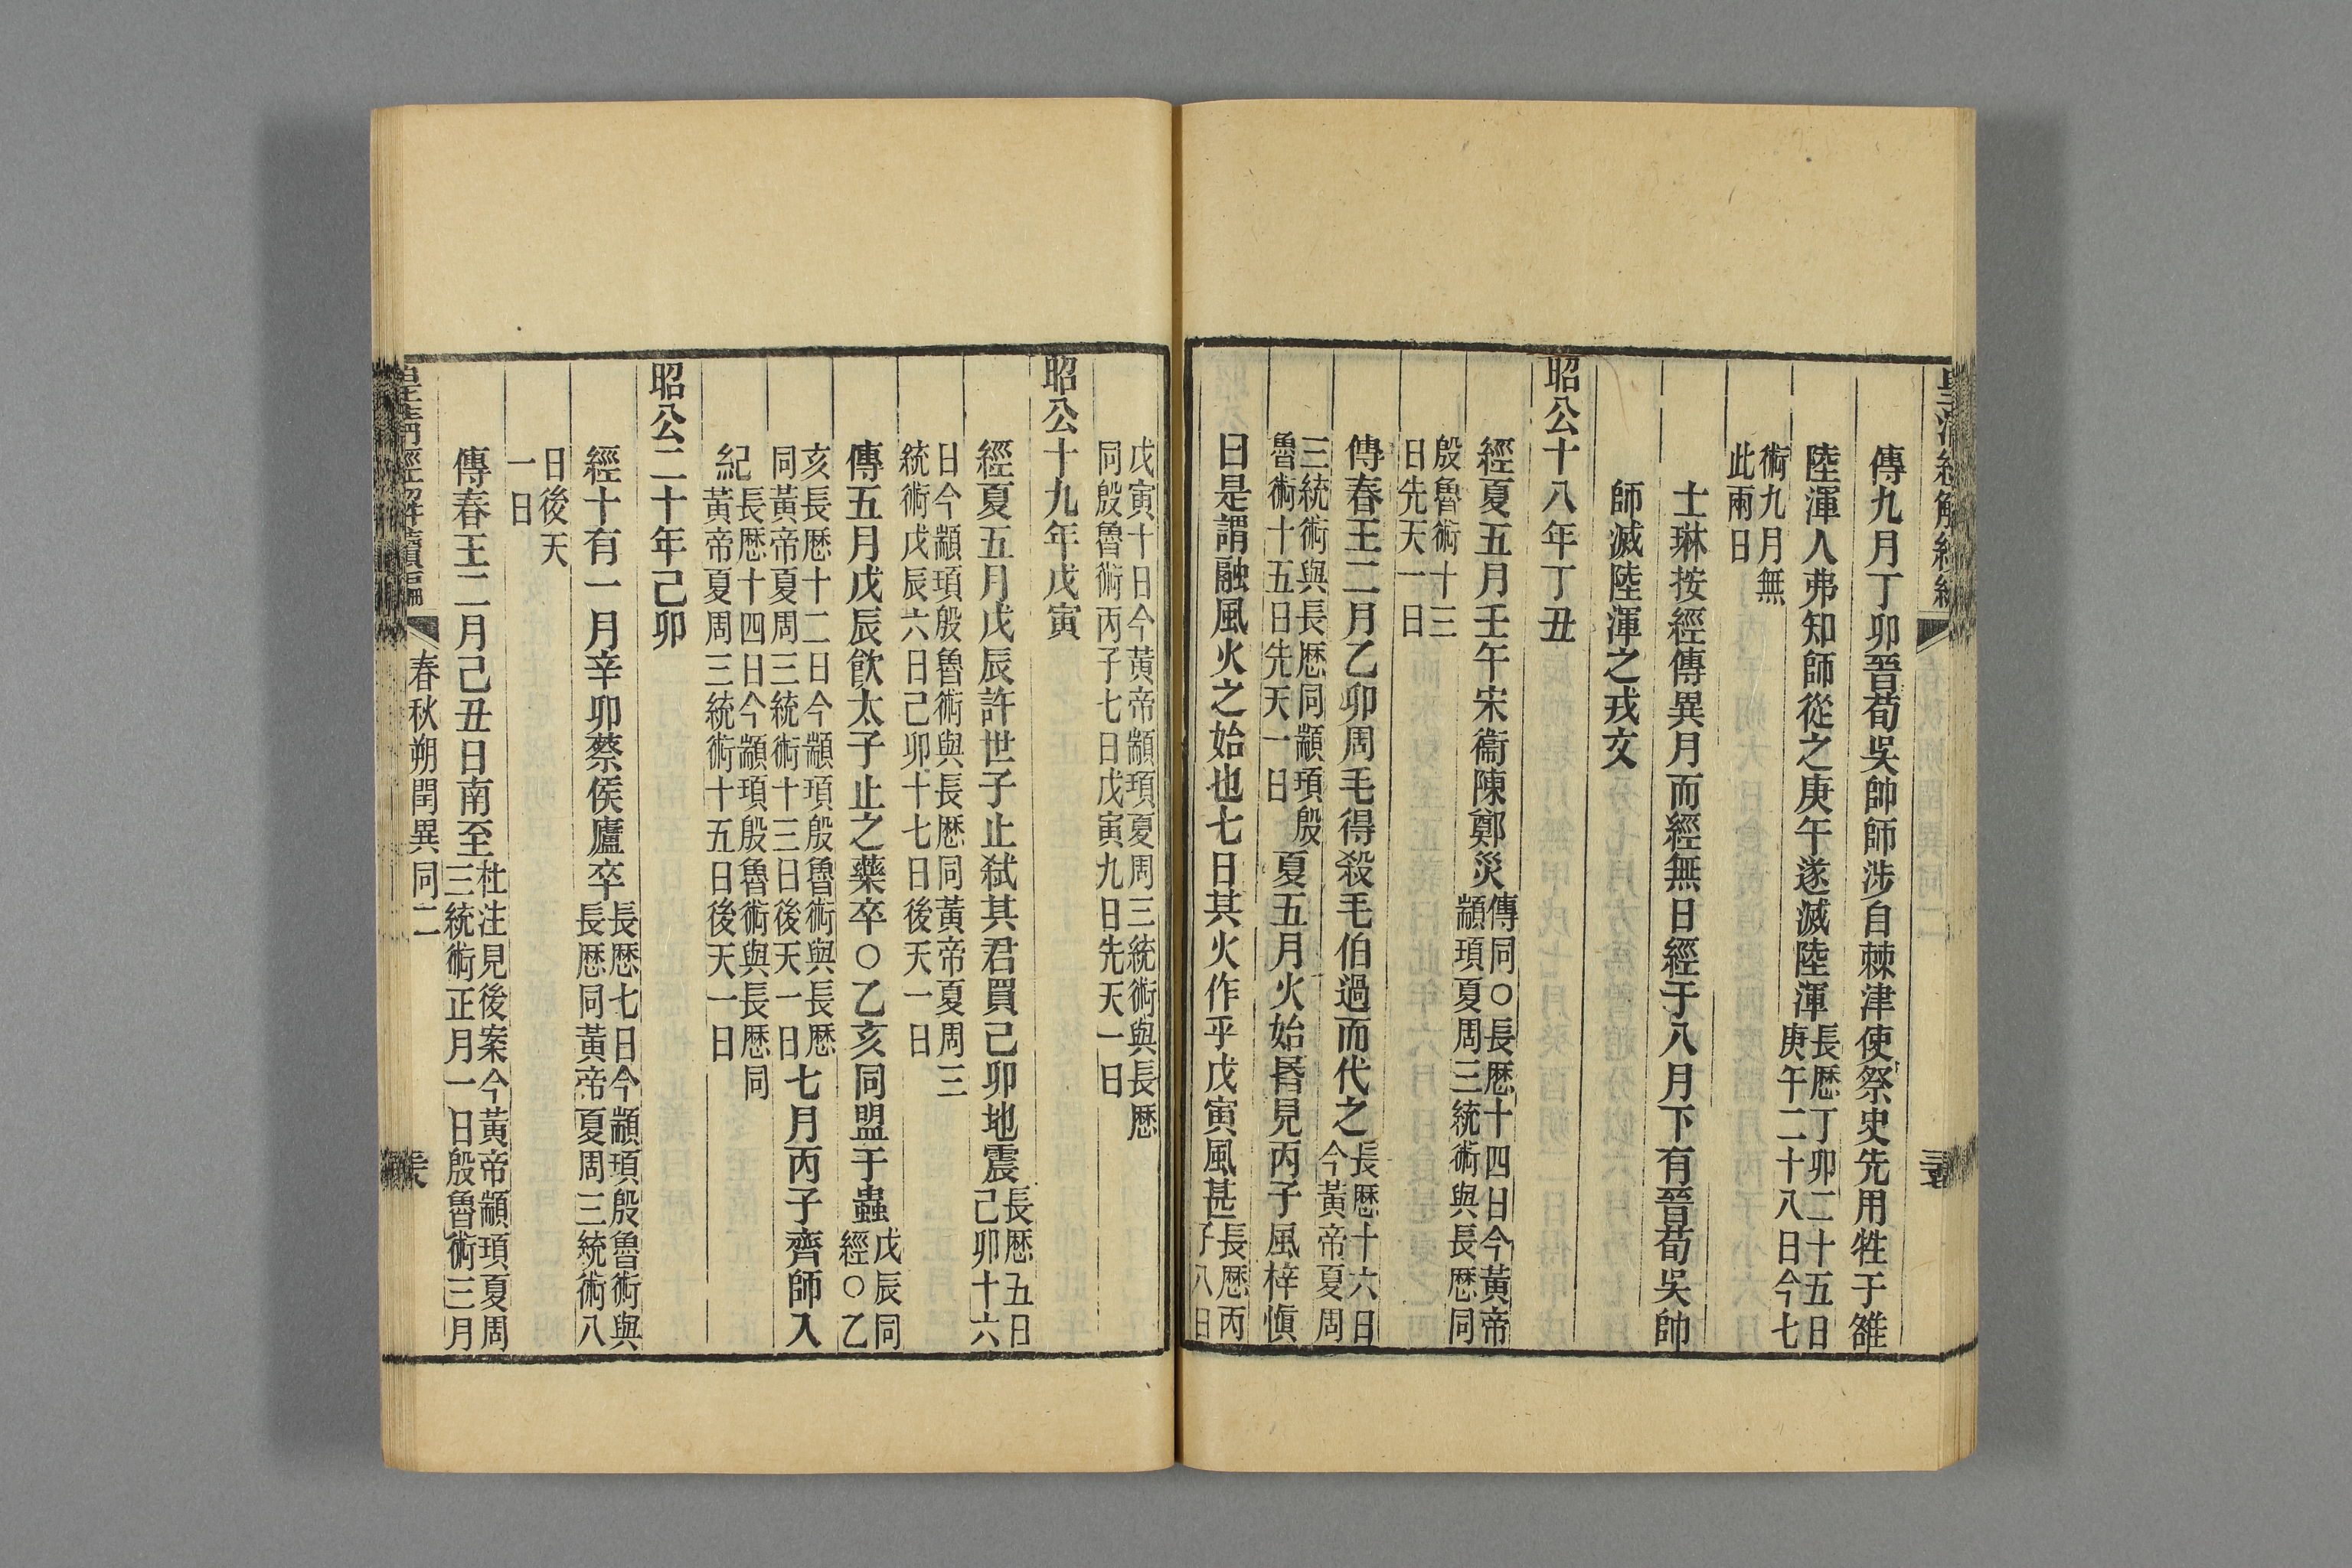 傳九月丁卯晉荀吳帥師涉自棘津使祭史先用牲于雒
陸渾人弗知師從之庚午遂滅陸渾長厯丁卯二十五日庚午二十八日今七
術九月無此兩日
士琳按經傳異月而經無日經于八月下有晉荀吳帥
師滅陸渾之戎文
昭公十八年丁丑
經夏五月壬午宋衞陳鄭災傳同○長厯十四日今黃帝顓頊夏周三統術與長厯同
殷魯術十三日先天一日
傳春王二月乙卯周毛得殺毛伯過而代之長厯十六日今黃帝夏周
三統術與長厯同顓頊殷魯術十五日先天一日夏五月火始昬見丙子風梓愼
曰是謂融風火之始也七日其火作乎戊寅風甚長厯丙子八日
戊寅十日今黃帝顓頊夏周三統術與長厯同殷魯術丙子七日戊寅九日先天一日
昭公十九年戊寅
經夏五月戊辰許世子止弒其君買己卯地震長厯五日己卯十六
日今顓頊殷魯術與長厯同黃帝夏周三統術戊辰六日己卯十七日後天一日
傳五月戊辰飮太子止之藥卒○乙亥同盟于蟲戊辰同經○乙
亥長厯十二日今顓頊殷魯術與長厯同黃帝夏周三統術十三日後天一日七月丙子齊師入
紀長厯十四日今顓頊殷魯術與長厯同黃帝夏周三統術十五日後天一日
昭公二十年己卯
經十有一月辛卯蔡侯廬卒長厯七日今顓頊殷魯術與長厯同黃帝夏周三統術八
日後天一日
傳春王二月己丑日南至杜注見後案今黃帝顓頊夏周三統術正月一日殷魯術三月
皇淸經解續編 春秋朔閏異同二